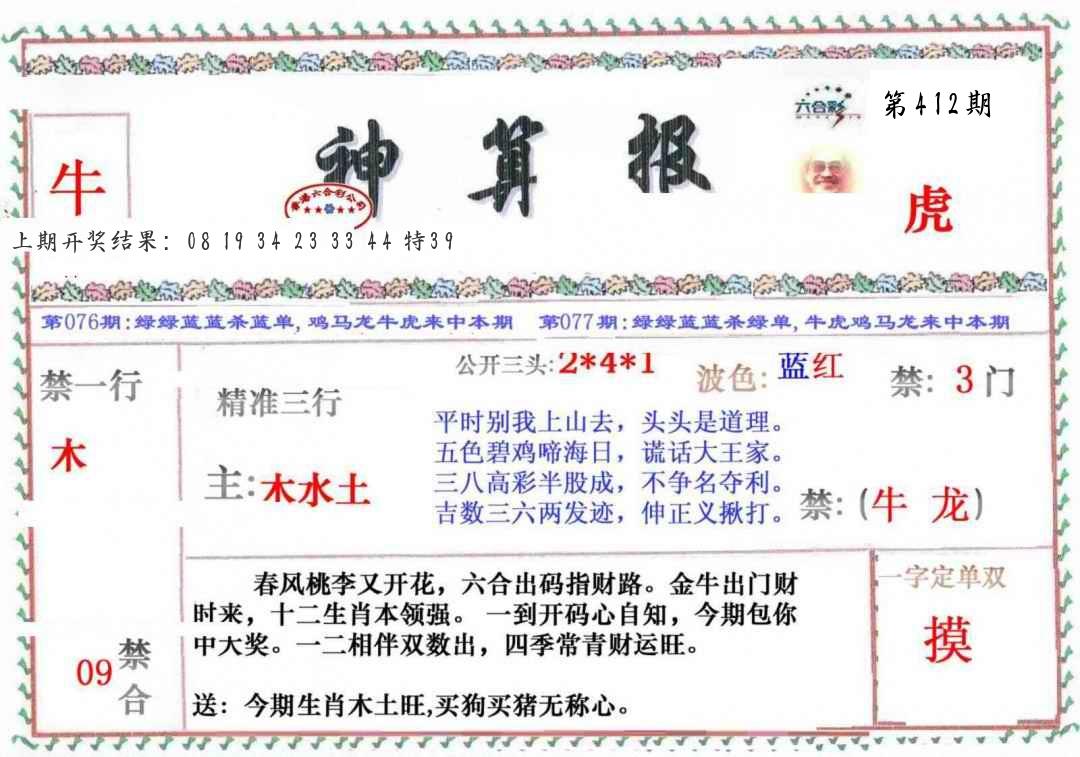 六合彩
第412期
神算报
牛
香港六合彩公司
虎
上期开奖结果：08 19 34 23 33 44 特39
第076期:绿绿蓝蓝杀蓝单,鸡马龙牛虎来中本期 第077期:绿绿蓝蓝杀绿单,牛虎鸡马龙来中本期
禁一行
木
精准三行
主:木水土
公开三头:2*4*1
波色:蓝红
禁: 3门
平时别我上山去，头头是道理。
五色碧鸡啼海日，谎话大王家。
三八高彩半股成，不争名夺利。
吉数三六两发迹，伸正义揪打。
禁:(牛 龙)
春风桃李又开花，六合出码指财路。金牛出门财
时来，十二生肖本领强。一到开码心自知，今期包你
中大奖。一二相伴双数出，四季常青财运旺。
送：今期生肖木土旺,买狗买猪无称心。
一字定单双
摸
09
禁合